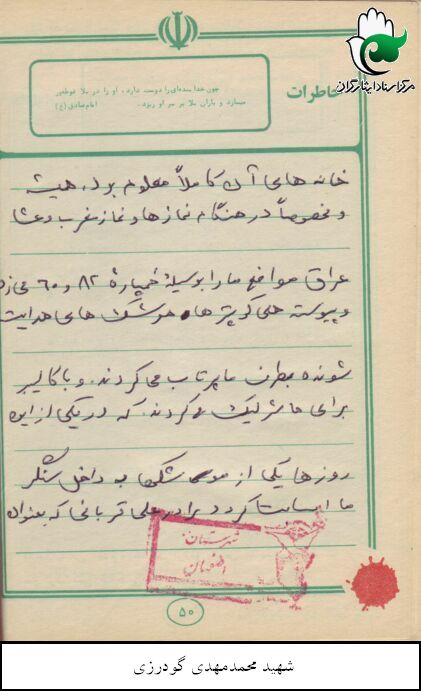 مرکز اسناد ایثارگران
خاطرات
چون خدا بنده‌ای را دوست دارد، او را در بلا غوطه‌ور
میسازد و باران بلا بر سر او ریزد. امام صادق (ع)
خانه های آن کاملاً معلوم بود. همیشه
و مخصوصاً در هنگام نمازها و نماز مغرب و عشا
عراق مواضع ما را بوسیلهٔ خمپارهٔ ۸۲ و ۶۰ می‌زد
و پیوسته هلی کوپترها موشک های هدایت
شونده بطرف ما پرتاب می کردند. و با کالیبر
برای ما شلیک می کردند. که در یکی از این
روزها یکی از موشکها به داخل سنگر
ما اصابت کرد و برادر علی قربانی که بعنوان
شهرستان
اصفهان
۵۰
شهید محمدمهدی گودرزی